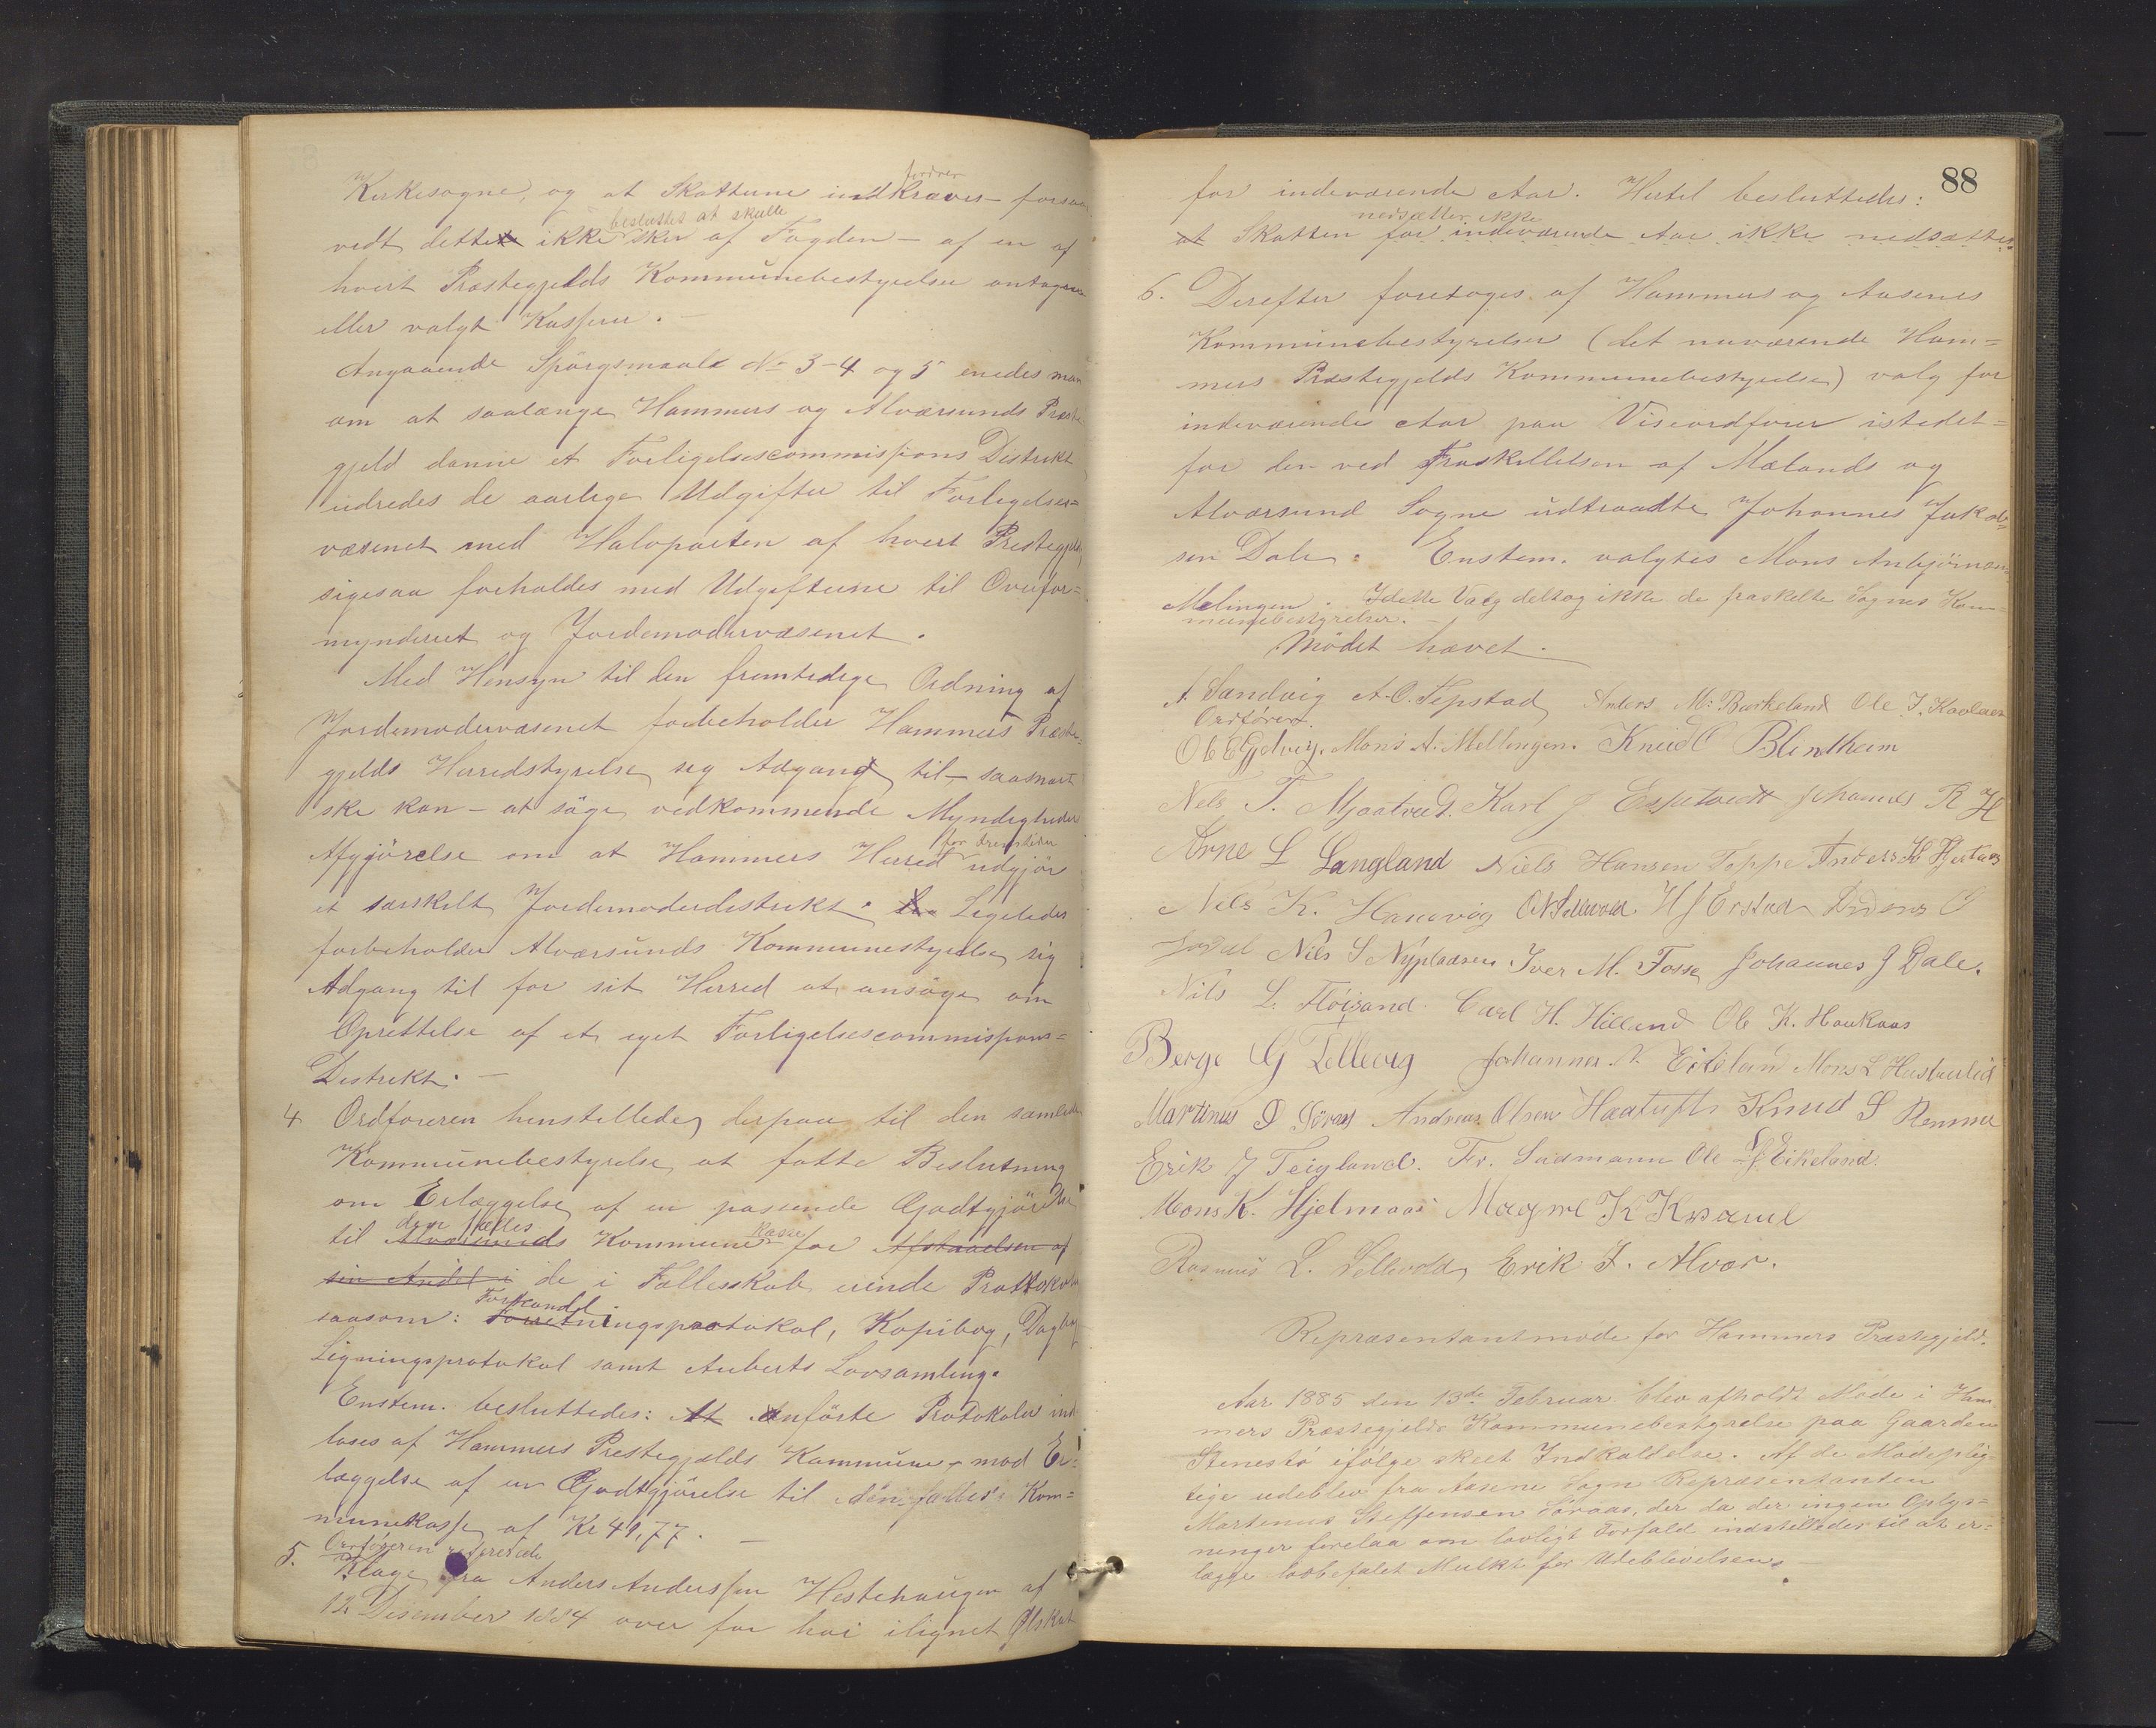 Kirkesogne, og at Skatterne indkræves fordres forsaa-
vidt dette ikke besluttes at skulle sker af Fogden – af en af
hvert Præstegjelds Kommunebestyrelse antagen
eller valgt Kasserer. –
Angaaende Spörgsmaale No 3-4 og 5 enedes man
om at saalænge Hammers og Alværsunds Præste-
gjeld danne et Forligelsescommissions Distrikt
udredes de aarlige Udgifter til Forligelses=
væsenet med Halvparten af hvert Prestegjeld,
ligesaa forholdes med Udgifterne til Overfor=
mynderiet og Jordemodervæsenet.
Med Hensyn til den fremtidige Ordning af
Jordemodervæsenet forbeholder Hammers Præste-
gjelds Herredstyrelse sig Adgang til – saasnart
ske kan – at söge vedkommende Myndigheders
Afgjörelse om at Hammers Herred for Fremtiden udgjör
et særskilt Jordemoderdistrikt. Ligeledes
forbeholder Alværsunds Kommunestyrelse sig
Adgang til for sit Herred at ansöge om
Oprettelse af et eget Forligelsescommissions=
Distrikt. –
4 Ordföreren henstillede derpaa til den samlede
Kommunebestyrelse at fatte Beslutning
om Erlæggelse af en passende Godtgjörelse
til Alværsunds den fælles Kommunekasse for Afstaaelsen af
sin Andel i de i Fællesskab eiende Prottokoler
saasom: Forretnings Forhandlingsprotokol, Kopibog, Dagbog
Ligningsprotokol samt Auberts Lovsamling.
Enstem. besluttedes: At Anförte Protokoler ind-
löses af Hammers Prestegjælds Kommune mod Er-
læggelse af en Godtgjörelse til den fælles Kom=
munekasse af Kr 41,77. –
5. Ordföreren refererede
Klage fra Anders Anderssen Hestehaugen af
12 Desember 1884 over for höi ilignet Ølskat
88
for indeværende Aar. Hertil besluttedes:
at Skatten nedsættes ikke for indeværende Aar ikke nedsættes
6. Derefter foretoges af Hammers og Aasenes
Kommunebestyrelser (det nuværende Ham=
mers Præstegjelds Kommunebestyrelse) valg for
indeværende Aar paa Viseordförer istedet=
for den ved Fraskillelsen af Mælands og
Alværsund Sogne udtraadte Johannes Jakob=
sen Dale. Enstem. valgtes Mons Anbjörnsen
Mellingen. I dette Valg deltog ikke de fraskilte Sognes Kom-
munebestyrelser. –
Mödet hævet.
A. Sandvig A. O. Tepstad Anders M. Barkeland Ole J. Kaalaas
Ordförer.
Ole E Gjelvig. Mons A. Mellingen. Knud O Blindheim
Nels T. Mjaatvedt. Karl J Espetvedt Johannes R H
Arne L Langland Niels Hansen Toppe Anders H Hjertaas
Nels K. Hanevig O N Sellevold H J Erstad
Nils S Nýpladsen Iver M. Fosse Johannes J Dale.
Nils L. Flöisand. Carl H. Hilland Ole K. Haukaas
Berge G Tellevig Johannes A. Eikeland Mons L Hasbrulid
Martinus S Söraas Andreas Olsen Haatuft Knud S Remme
Erik J Teigland. Fr. Sadmann Ole Eikeland.
Mons K. Hjelmaas Magne K Kvamme
Rasmus L. Sellevold, Erik I. Alver.
Repræsentantmöde for Hammers Præstegjeld.
Aar 1885 den 13de Februar blev afholdt Möde i Ham
mers Præstegjelds Kommunebestyrelse paa Gaarden
Stenestö ifölge skeet Indkaldelse. Af de Mödeplig-
tige udeblev fra Aasene Sogn Repræsentanten
Martinus Steffensen Söraas, der da der ingen Oplys=
ninger forelaa om lovligt Forfald indstilledes til at er=
lægge lovbefalet Mulkt for Udeblivelsen.